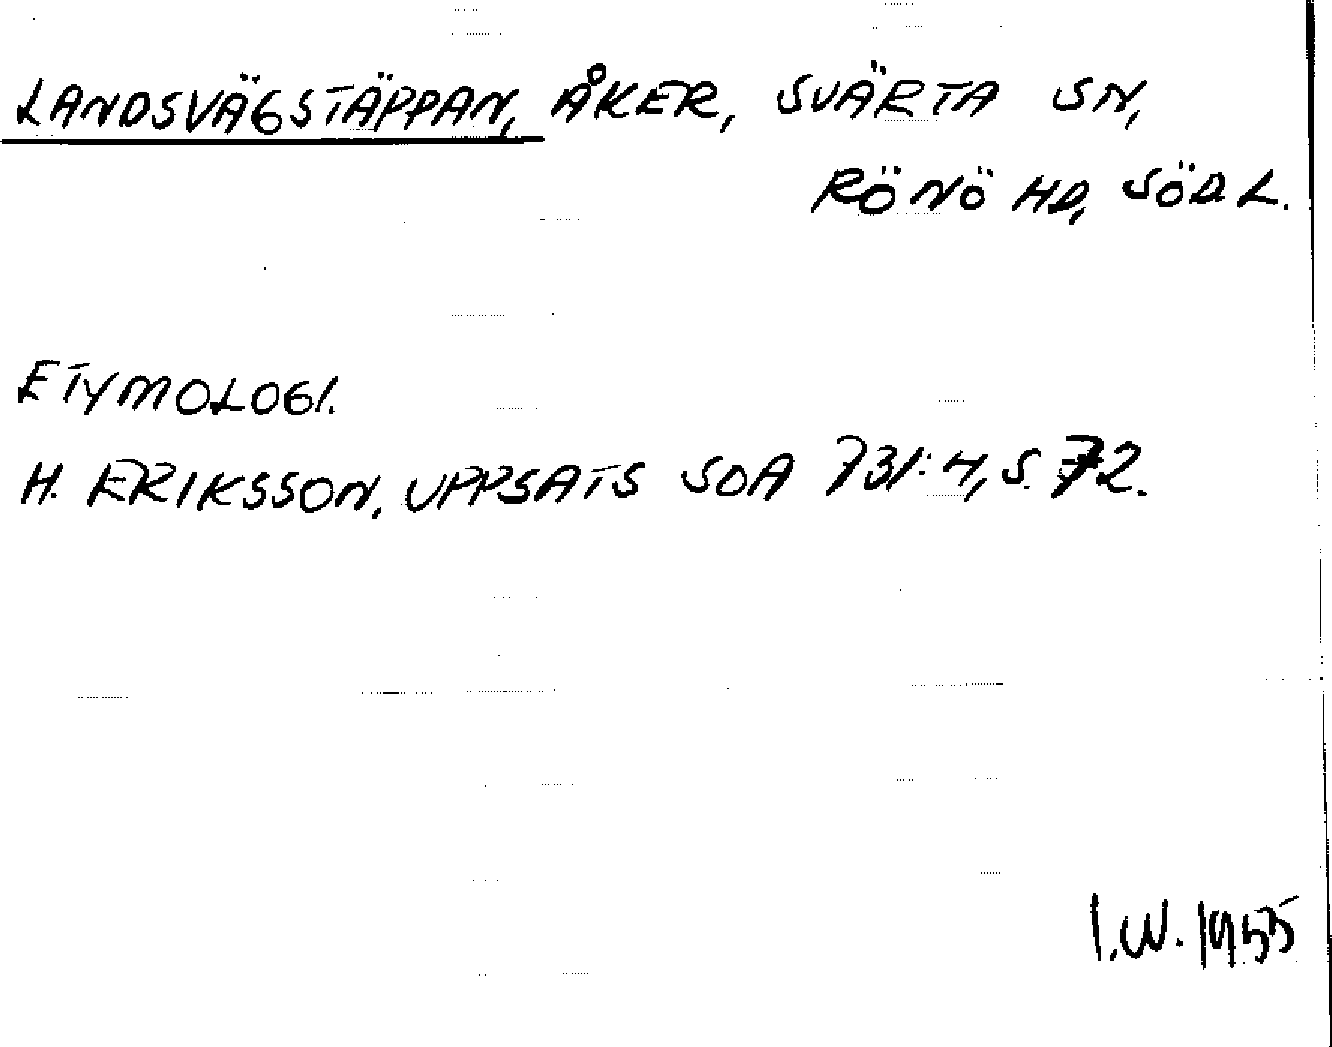 LANDSVÄGSTÄPPAN, ÅKER, SVÄRTA SN,
RÖNÖ HD, SÖDL.
ETYMOLOGI.
H. ERIKSSON, UPPSATS SOA 731:4, S. 72.
I.W. 1955